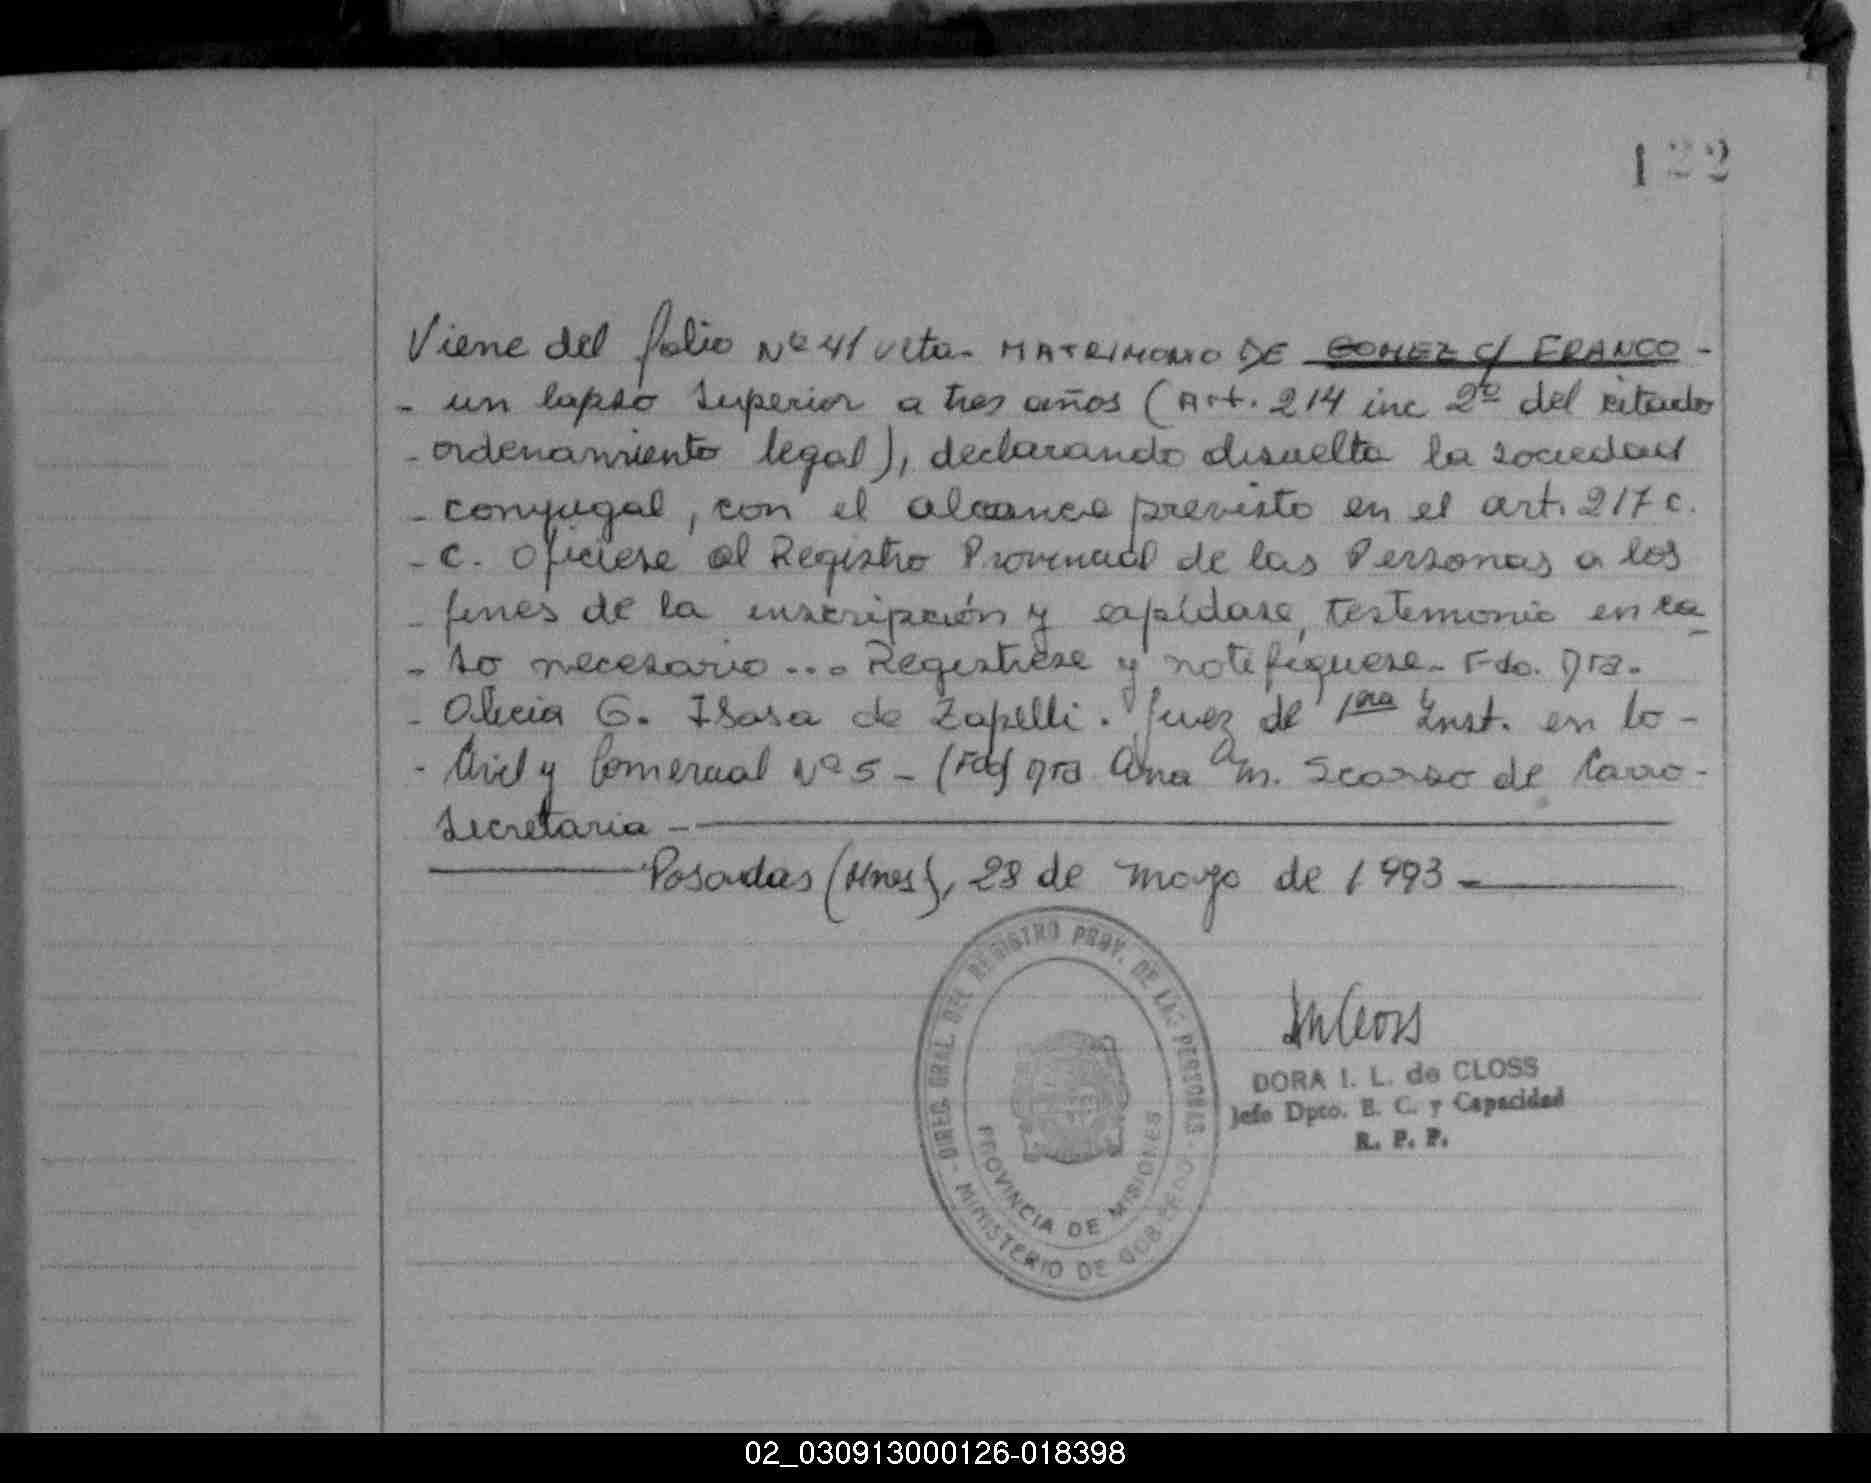 122
Viene del folio Nº 41 vlta. MATRIMONIO DE GOMEZ C/ FRANCO -
- un lapso superior a tres años (Art. 214 inc 2º del citado
- ordenamiento legal), declarando disuelta la sociedad
- conyugal, con el alcance previsto en el art. 217 c.
- c. Ofíciese al Registro Provincial de las Personas a los
- fines de la inscripción y expídase, testimonio en ca
- so necesario... Regístrese y notifíquese. Fdo. Dra.
- Alicia G. Isasa de Zapelli. Juez de 1ra Inst. en lo -
- Civil y Comercial Nº 5 - (Fdo) Dra Ana M. Scarso de Carro -
Secretaria -
Posadas (Mnes), 28 de mayo de 1993 -
DIREC. GRAL. DEL REGISTRO PROV. DE LAS PERSONAS
- MINISTERIO DE GOBIERNO -
PROVINCIA DE MISIONES
DORA I. L. de CLOSS
Jefe Dpto. E. C. y Capacidad
R. P. P.
02_030913000126-018398